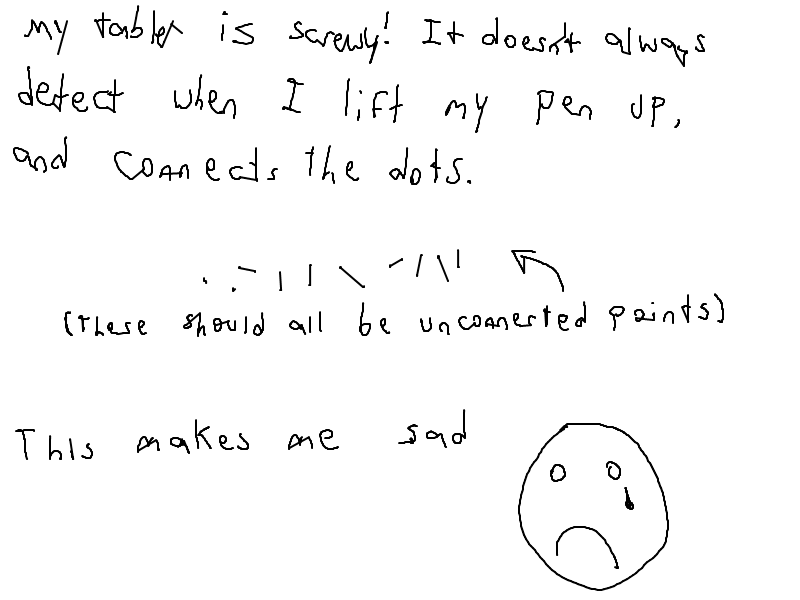 my tablet is screwy! It doesn't always
detect when I lift my pen up,
and connects the dots.
(these should all be unconnected points)
This makes me sad